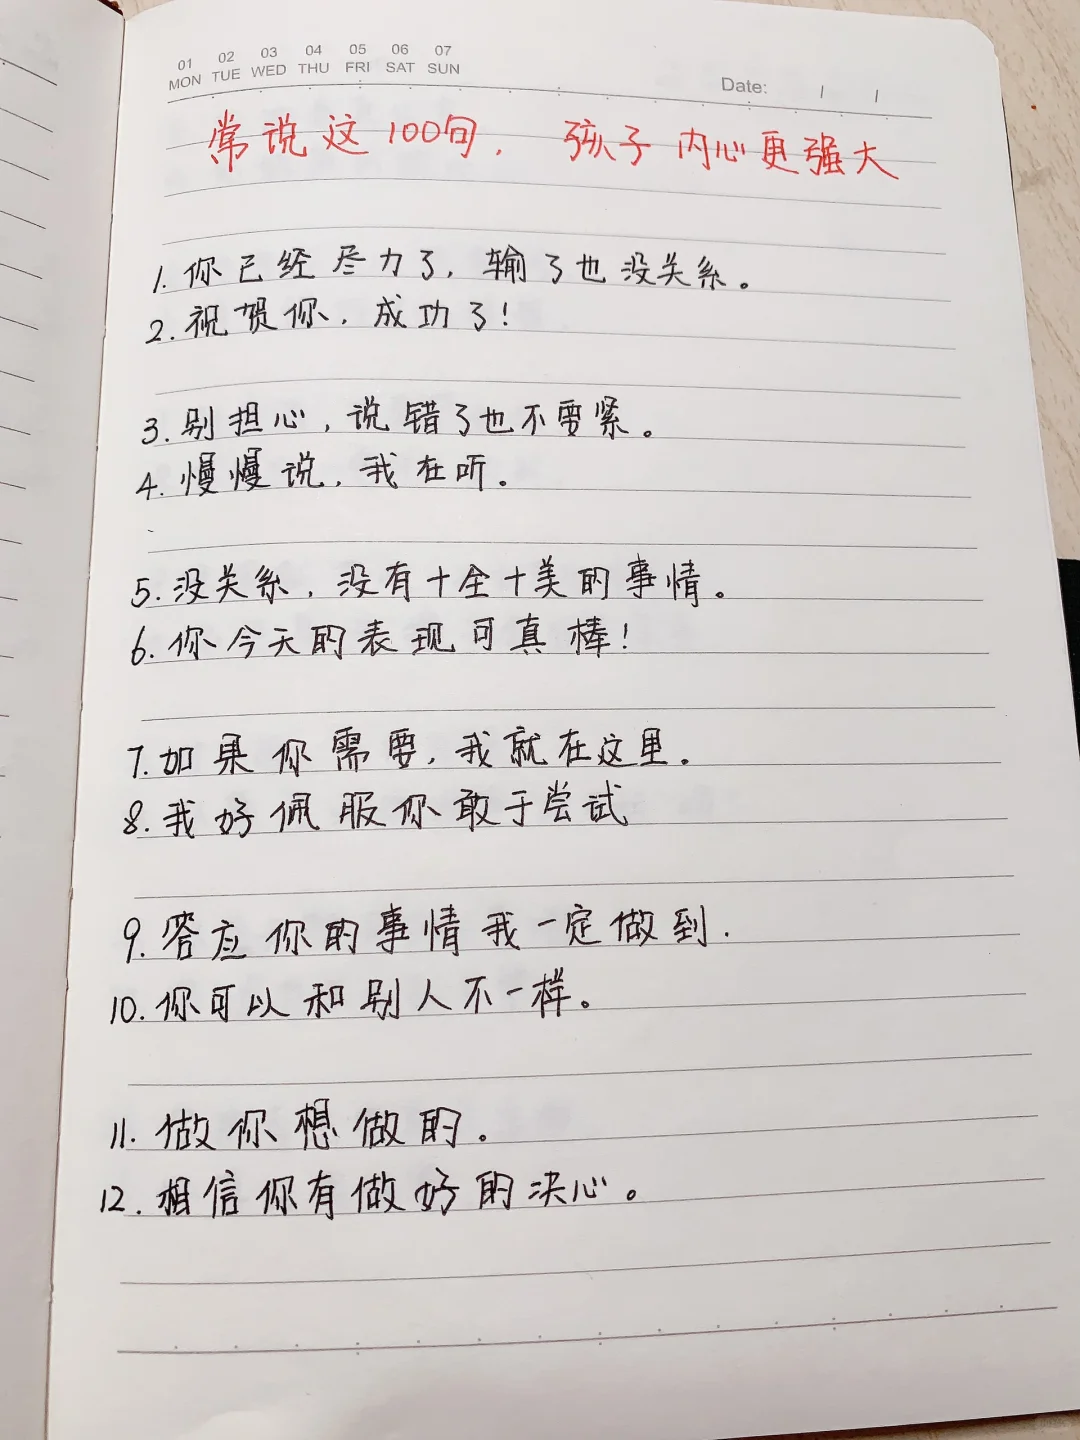 01 02 03 04 05 06 07
MON TUE WED THU FRI SAT SUN
Date: / /
常说这100句, 孩子内心更强大
1.你已经尽力了,输了也没关系。
2.祝贺你,成功了!
3.别担心,说错了也不要紧。
4.慢慢说,我在听。
5.没关系,没有十全十美的事情。
6.你今天的表现可真棒!
7.如果你需要,我就在这里.
8.我好佩服你敢于尝试
9.答应你的事情我一定做到.
10.你可以和别人不一样。
11.做你想做的。
12.相信你有做好的决心。